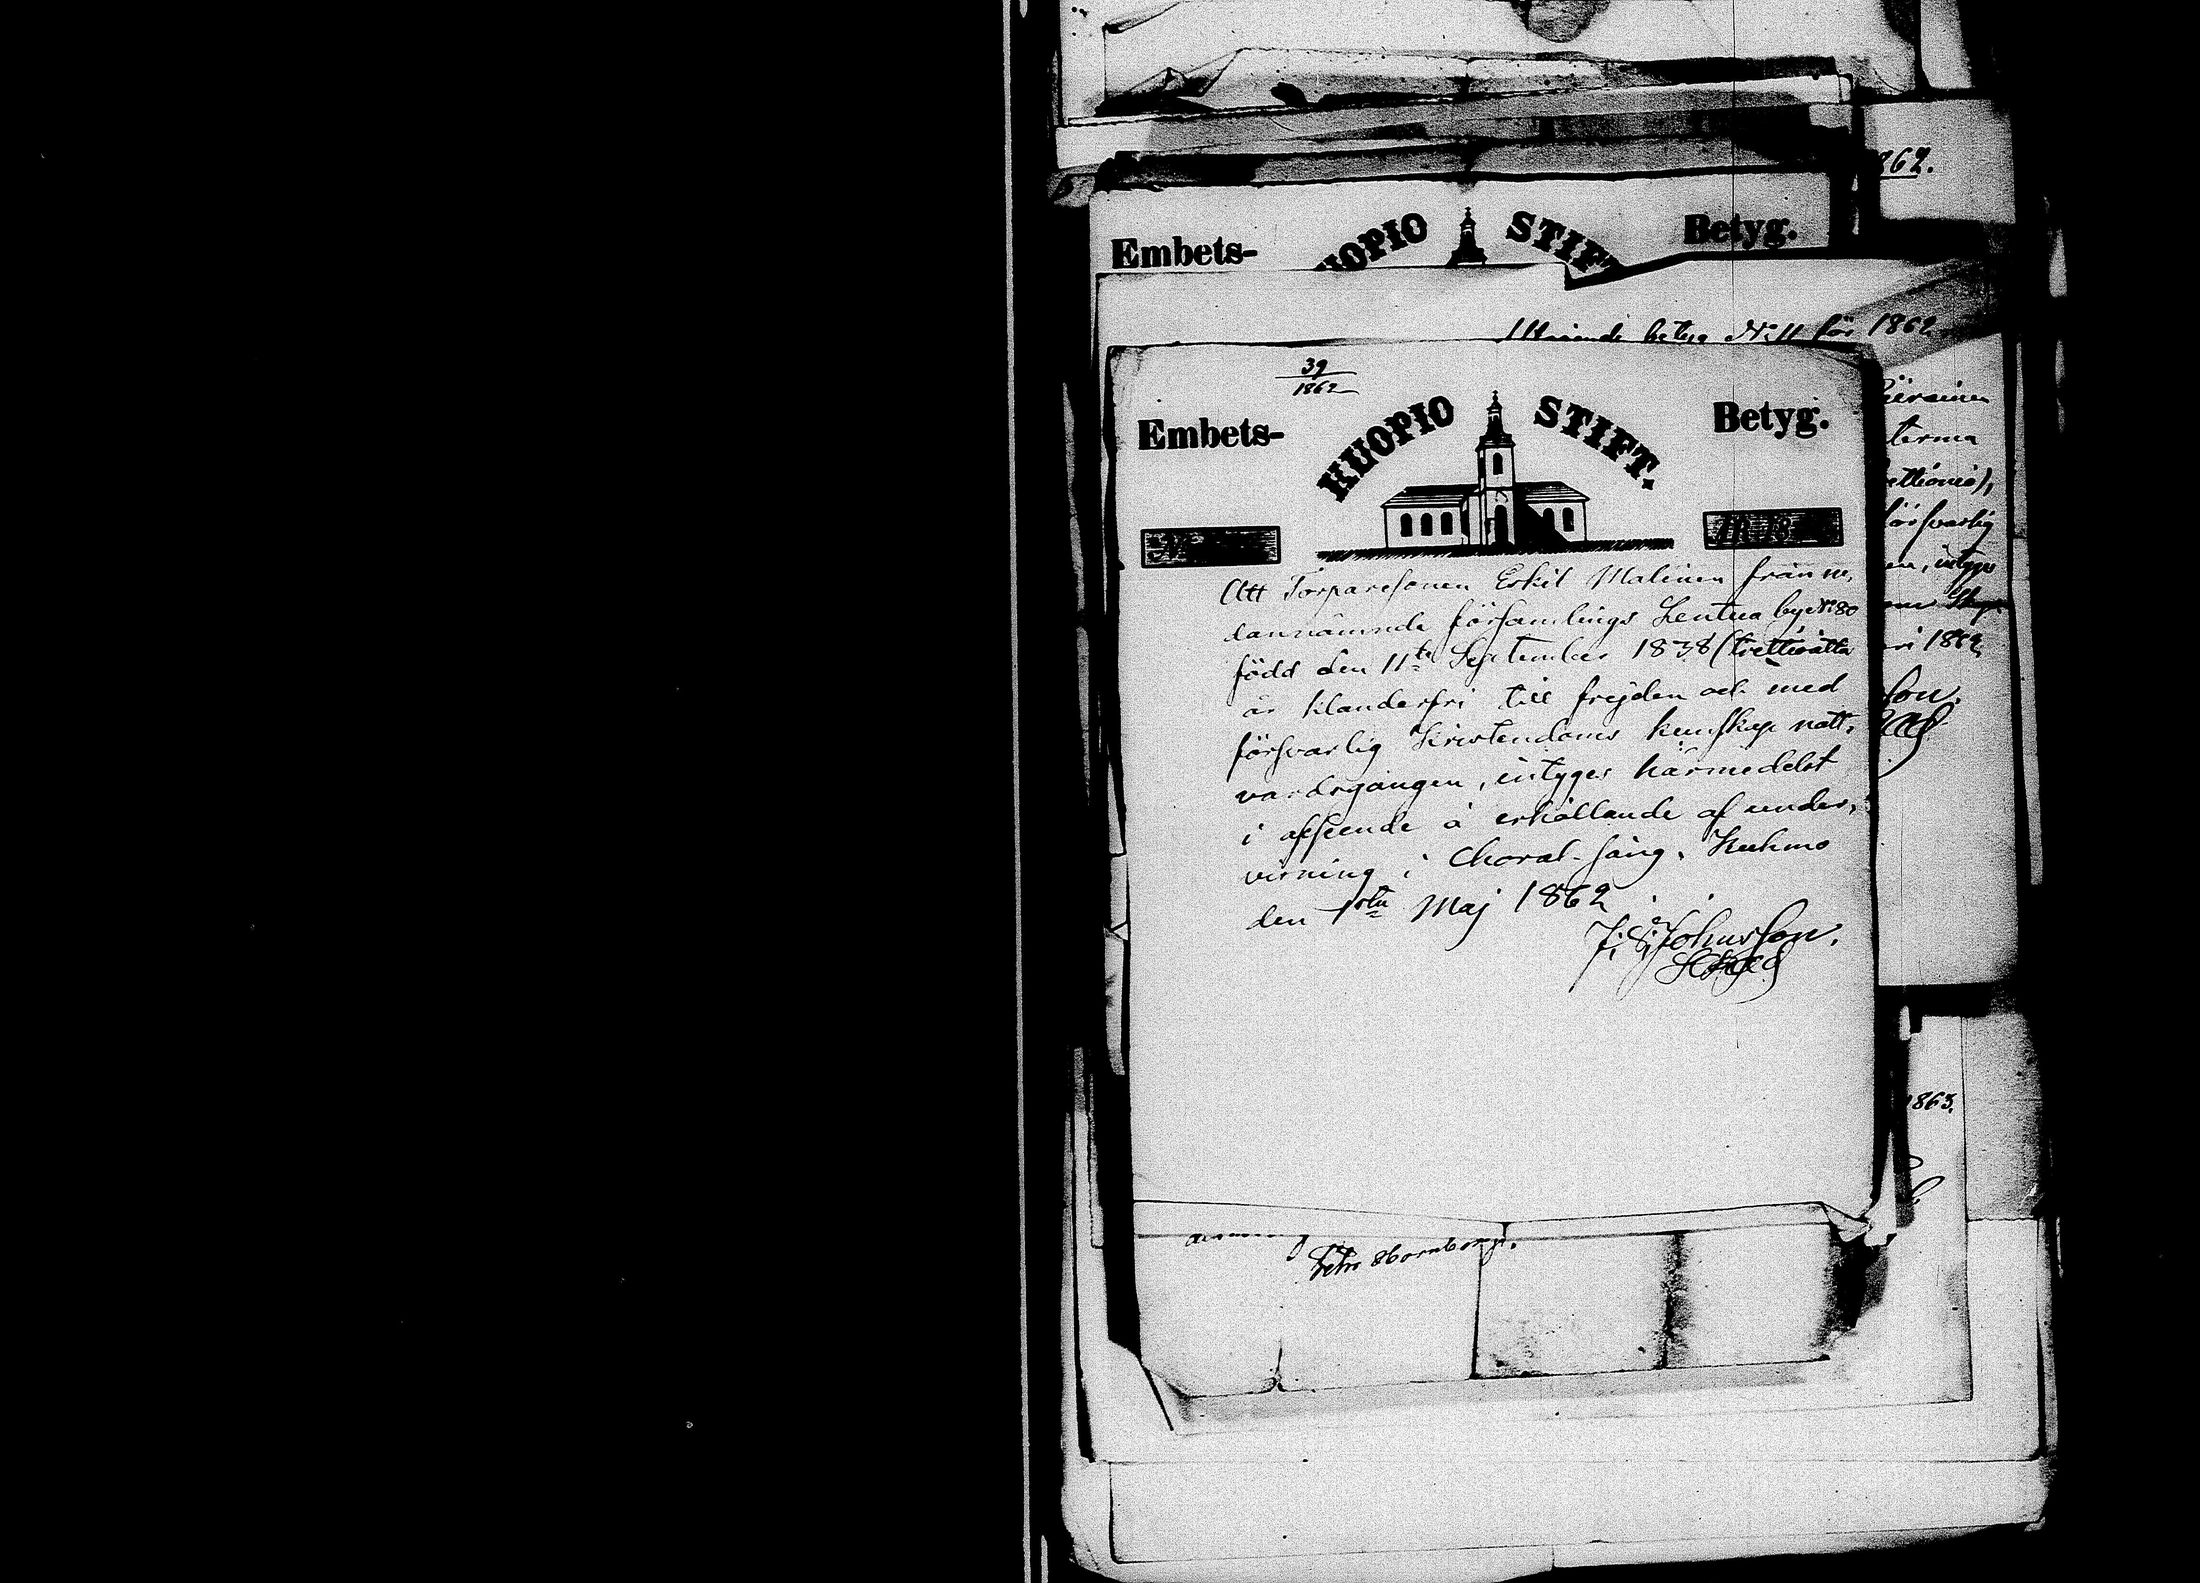 262.
Embets-
KUOPIO STIFT
Betyg.
betyg N:11 för 1862
39
1862
Embets-
KUOPIO STIFT.
Betyg.
Att Torparesonen Eskil Malinen från ne,
dannämnde församlings Lentua by N:80
född den 11te September 1838 (trettioåtta
är klanderfri till frejden och med
försvarlig Kristendoms kunskap natt,
vardsgången, intygar härmedelst
i afseende å erhållande af under,
visning i Choral-sång. Kuhmo
den 1sta Maj 1862
J. E. Johnsson.
försvarlig
intygar
1862
son.
1863.
Petr. Hornborg.